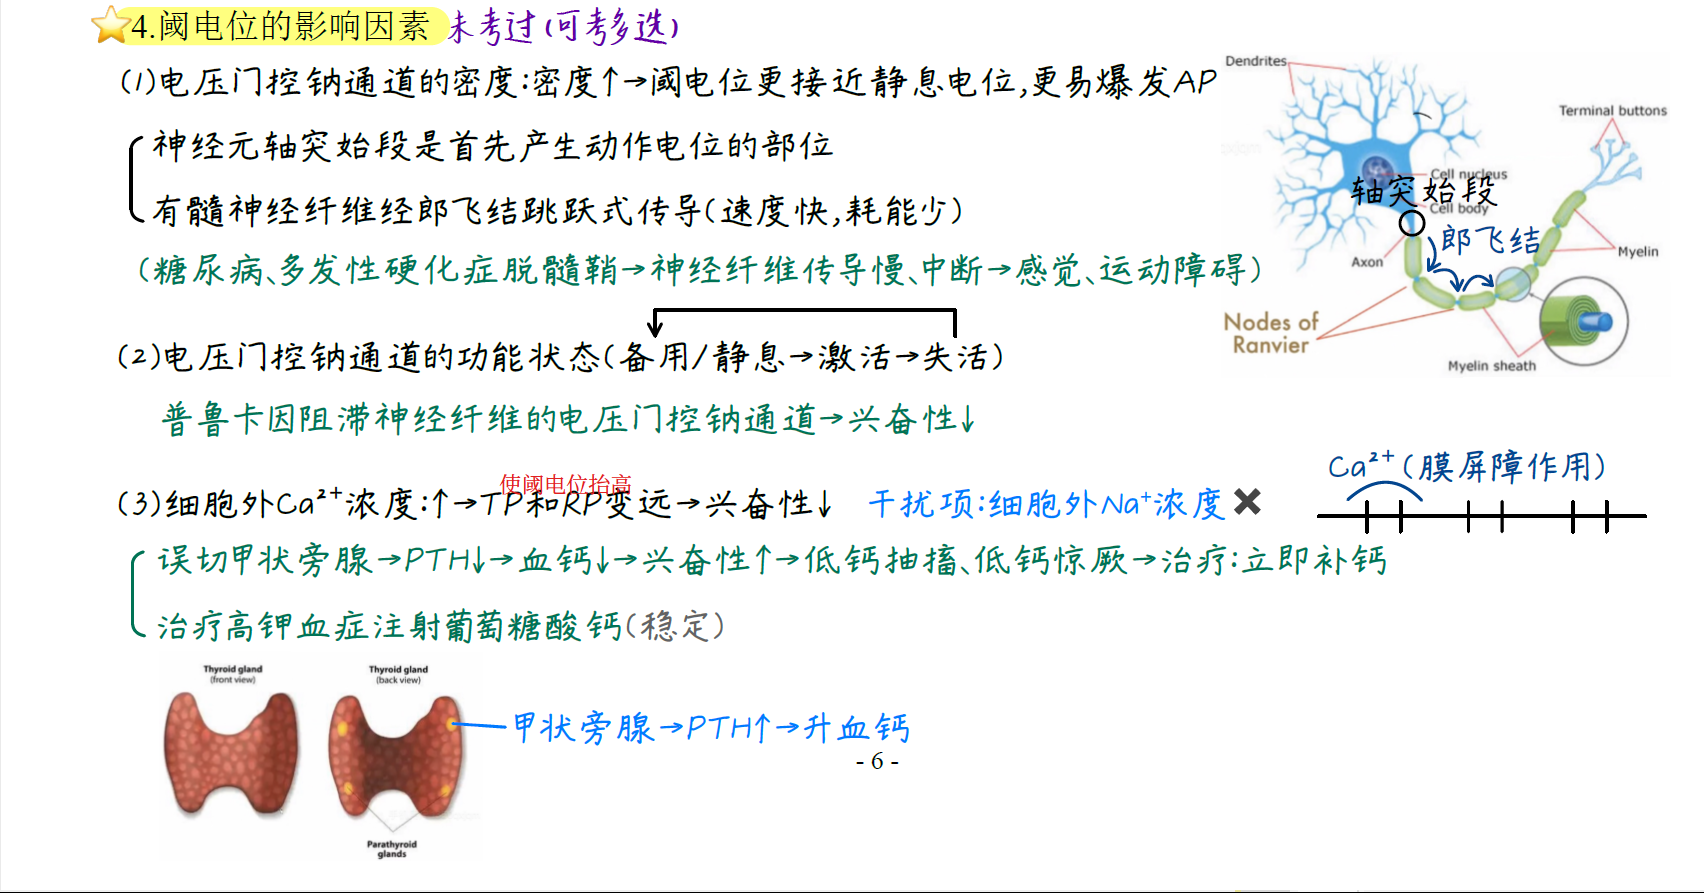 4.阈电位的影响因素 未考过(可考多选)
(1)电压门控钠通道的密度:密度↑→阈电位更接近静息电位,更易爆发AP
神经元轴突始段是首先产生动作电位的部位
有髓神经纤维经郎飞结跳跃式传导(速度快,耗能少)
(糖尿病、多发性硬化症脱髓鞘→神经纤维传导慢、中断→感觉、运动障碍)
Dendrites
Terminal buttons
Cell nucleus
轴突始段
Cell body
郎飞结
Axon
Myelin
Nodes of
Ranvier
Myelin sheath
(2)电压门控钠通道的功能状态(备用/静息→激活→失活)
普鲁卡因阻滞神经纤维的电压门控钠通道→兴奋性↓
使阈电位抬高
(3)细胞外Ca²⁺浓度:↑→TP和RP变远→兴奋性↓ 干扰项:细胞外Na⁺浓度✖
Ca²⁺(膜屏障作用)
误切甲状旁腺→PTH↓→血钙↓→兴奋性↑→低钙抽搐、低钙惊厥→治疗:立即补钙
治疗高钾血症注射葡萄糖酸钙(稳定)
Thyroid gland
(front view)
Thyroid gland
(back view)
甲状旁腺→PTH↑→升血钙
Parathyroid
glands
- 6 -